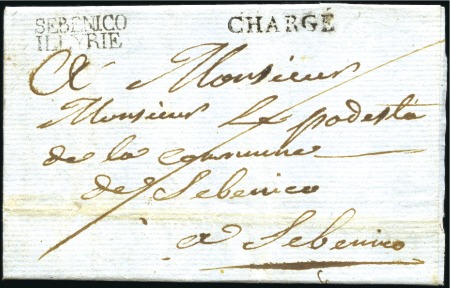 SEBENICO
ILLYRIE
CHARGÉ
A Monsieur
Monsieur Le podestà
de la commune
de Sebenico
a Sebenico